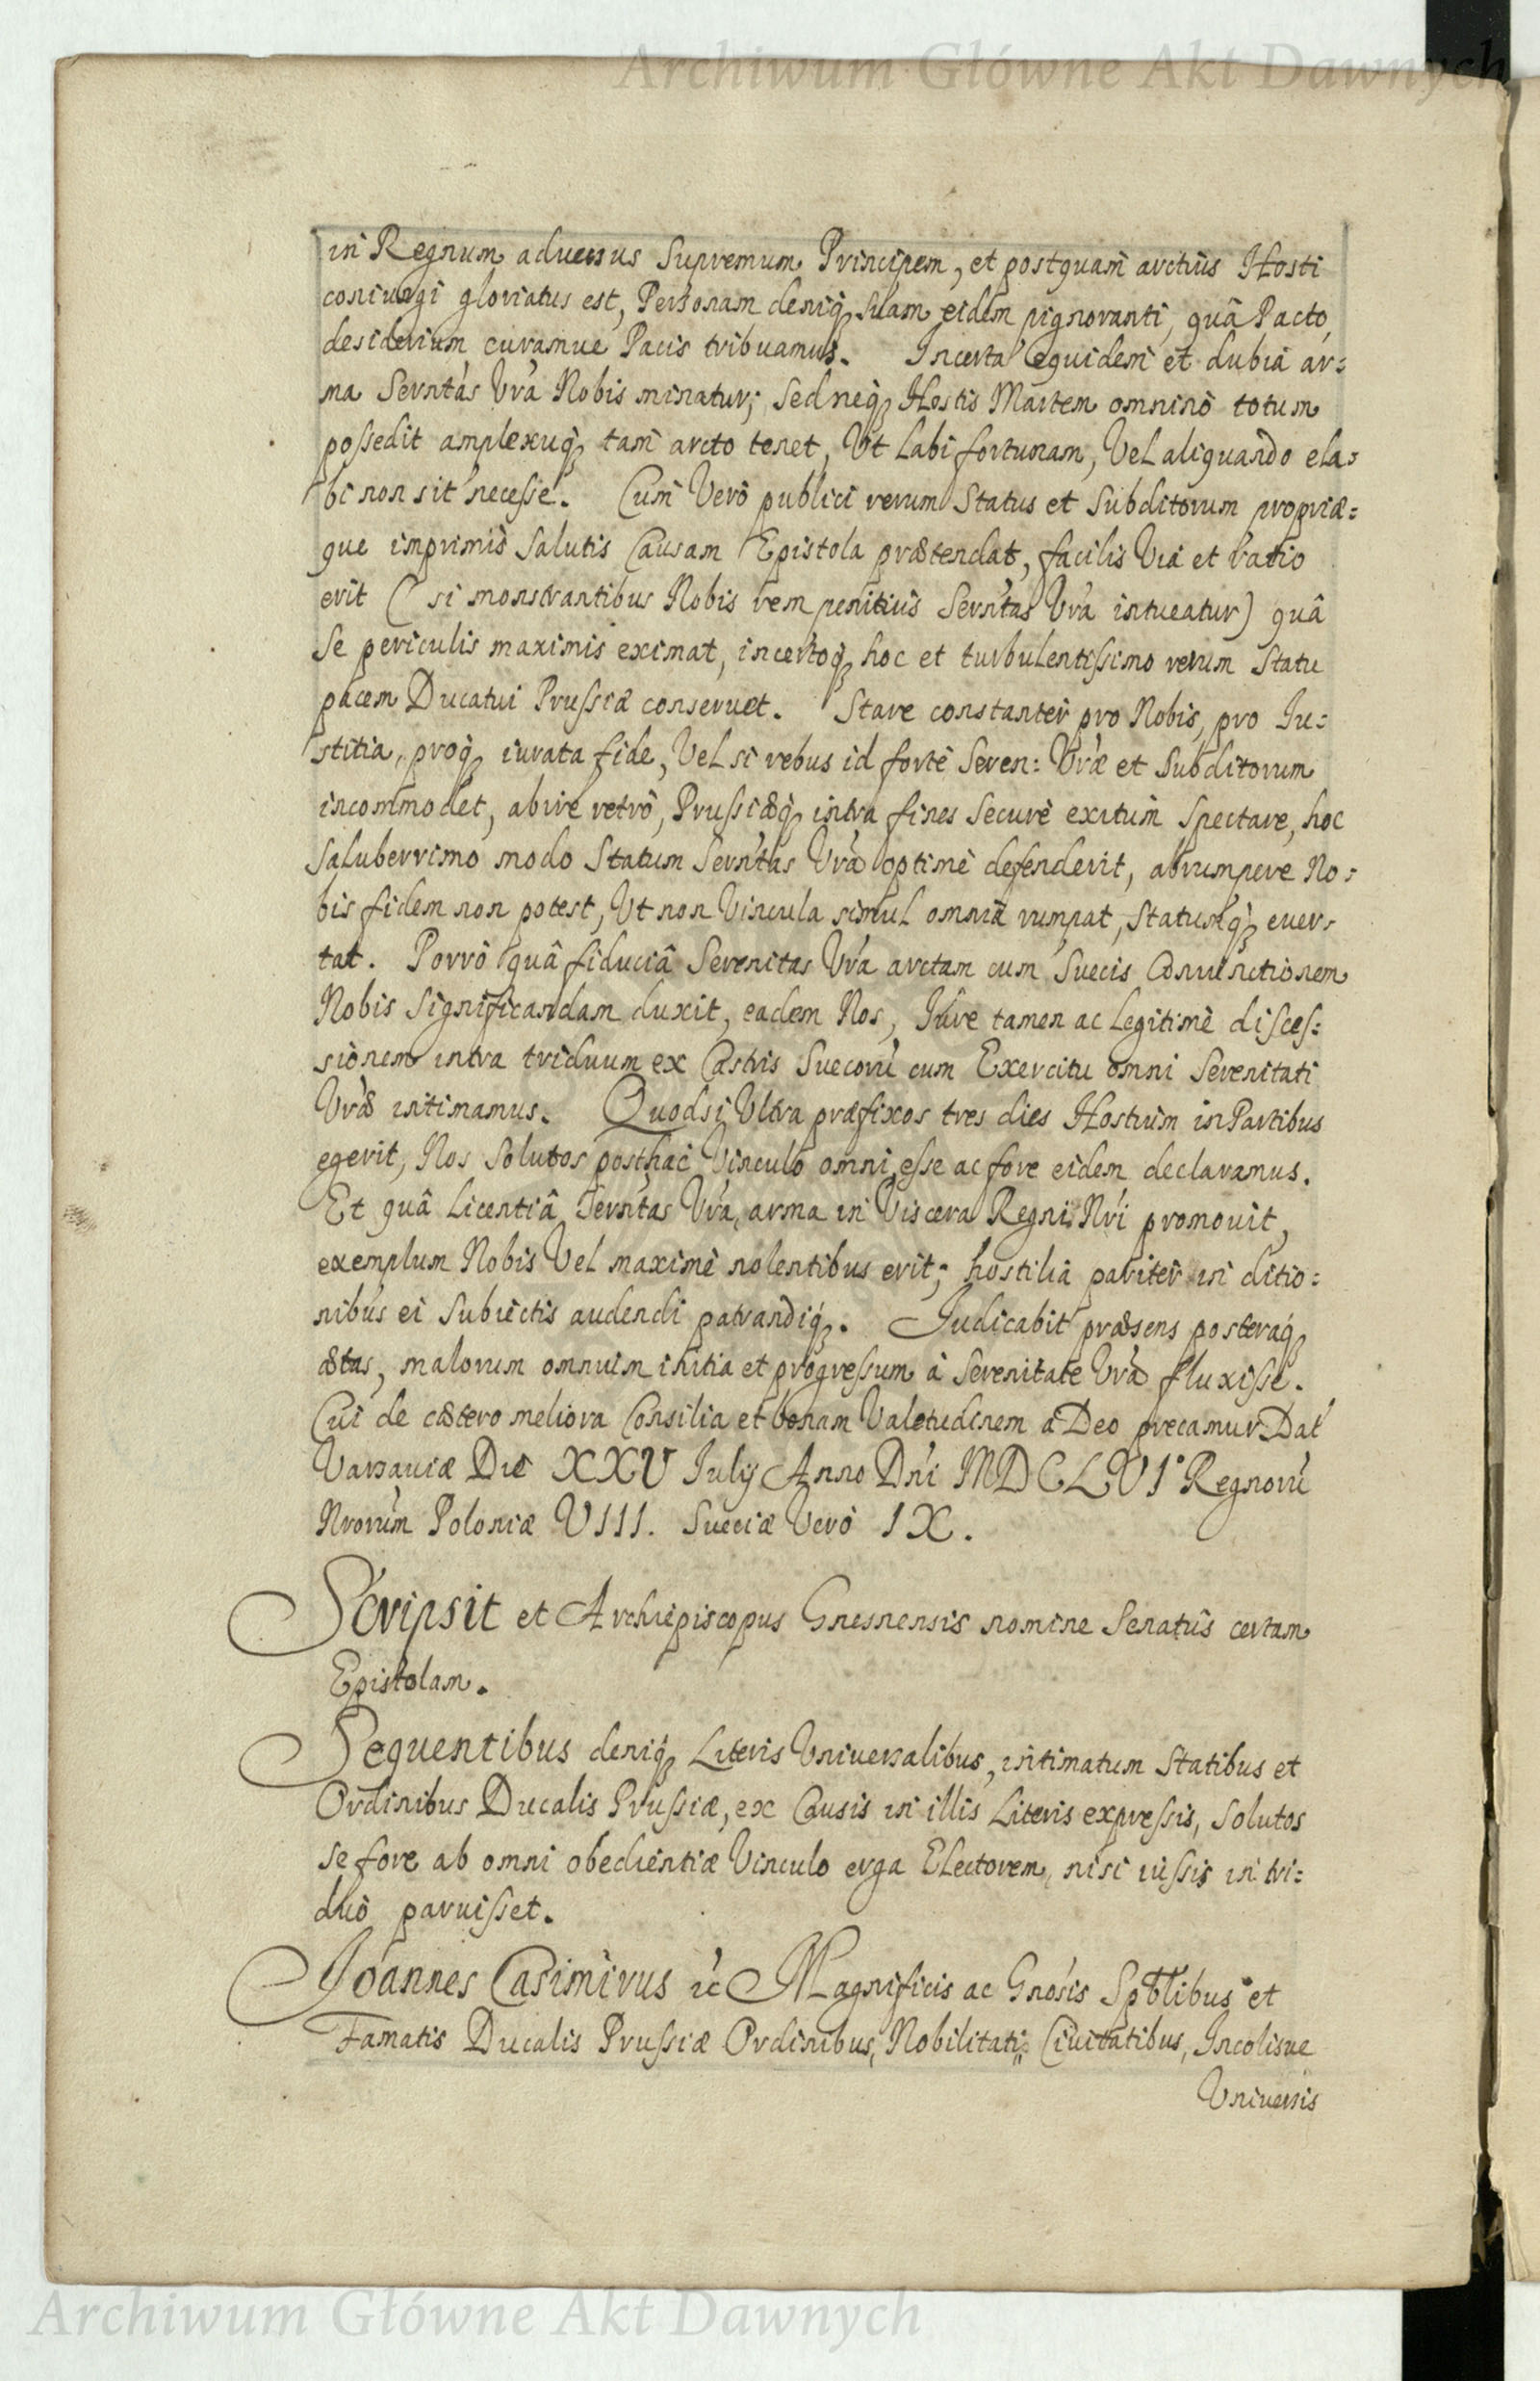 Archiwum Główne Akt Dawnych
in Regnum aduersus Supremum Principem, et postquam arctius Hosti
coniungi gloriatus est, Personam deniq; suam eidem pignoranti, quâ Pacto
desiderium curamue Pacis tribuamus. Incerta equidem et dubia ar=
ma Sernt́as Vŕa Nobis minatur; sed neq; Hostis Martem omninò totum
possedit amplexuq; tam arcto tenet, Vt labi fortunam, Vel aliquando ela=
bi non sit necesse. Cum Verò publici rerum Status et Subditorum propriæ=
que imprimis Salutis Causam Epistola prætendat, facilis Via et ratio
erit (si monstrantibus Nobis rem penitiùs Sernt́as Vŕa intueatur) quâ
Se periculis maximis eximat, incertoq; hoc et turbulentissimo rerum Statu
pacem Ducatui Prussiæ conseruet. Stare constanter pro Nobis, pro Iu=
stitia, proq; iurata fide, Vel si rebus id fortè Seren: Vŕæ et Subditorum
incommodet, abire retrò, Prussiæq; intra fines Securè exitum Spectare, hoc
Saluberrimo modo Statum Sernt́as Vŕa optimè defenderit, abrumpere No=
bis fidem non potest, Vt non Vincula simul omnia rumpat, Statumq; euer=
tat. Porrò quâ fiduciâ Serenitas Vŕa arctam cum Suecis Coniunctionem
Nobis Significandam duxit, eadem Nos, Iure tamen ac Legitimè disces=
sionem intra triduum ex Castris Suecorū cum Exercitu omni Serenitati
Vŕæ intimamus. Quodsi Vltra præfixos tres dies Hostium in Partibus
egerit, Nos Solutos posthac Vinculo omni esse ac fore eidem declaramus.
Et quâ Licentiâ Sernt́as Vŕa, arma in Viscera Regni Nŕi promouit,
exemplum Nobis Vel maximè nolentibus erit; hostilia pariter in ditio=
nibus ei Subiectis audendi patrandiq;. Judicabit præsens posteraq;
ætas, malorum omnium initia et progressum à Serenitate Vŕa fluxisse.
Cui de cætero meliora Consilia et bonam Valetudinem a Deo precamur Dat́
Varsauiæ Die XXV Iulij Anno Dńi MDCLVI° Regnorū
Nrorúm Poloniæ VIII. Sueciæ Verò IX.
Scripsit et Archiepiscopus Gnesnensis nomine Senatûs certam
Epistolam.
Sequentibus deniq; Literis Vniuersalibus, intimatum Statibus et
Ordinibus Ducalis Prussiæ, ex Causis in illis Literis expressis, Solutos
se fore ab omni obedientiæ Vinculo erga Electorem, nisi iussis in tri=
duò paruisset.
Joannes Casimirus &c Magnificis ac Gnósis Spt̄libus et
Famatis Ducalis Prussiæ Ordinibus, Nobilitati, Ciuitatibus, Incolisue
Vniuersis
Archiwum Główne Akt Dawnych